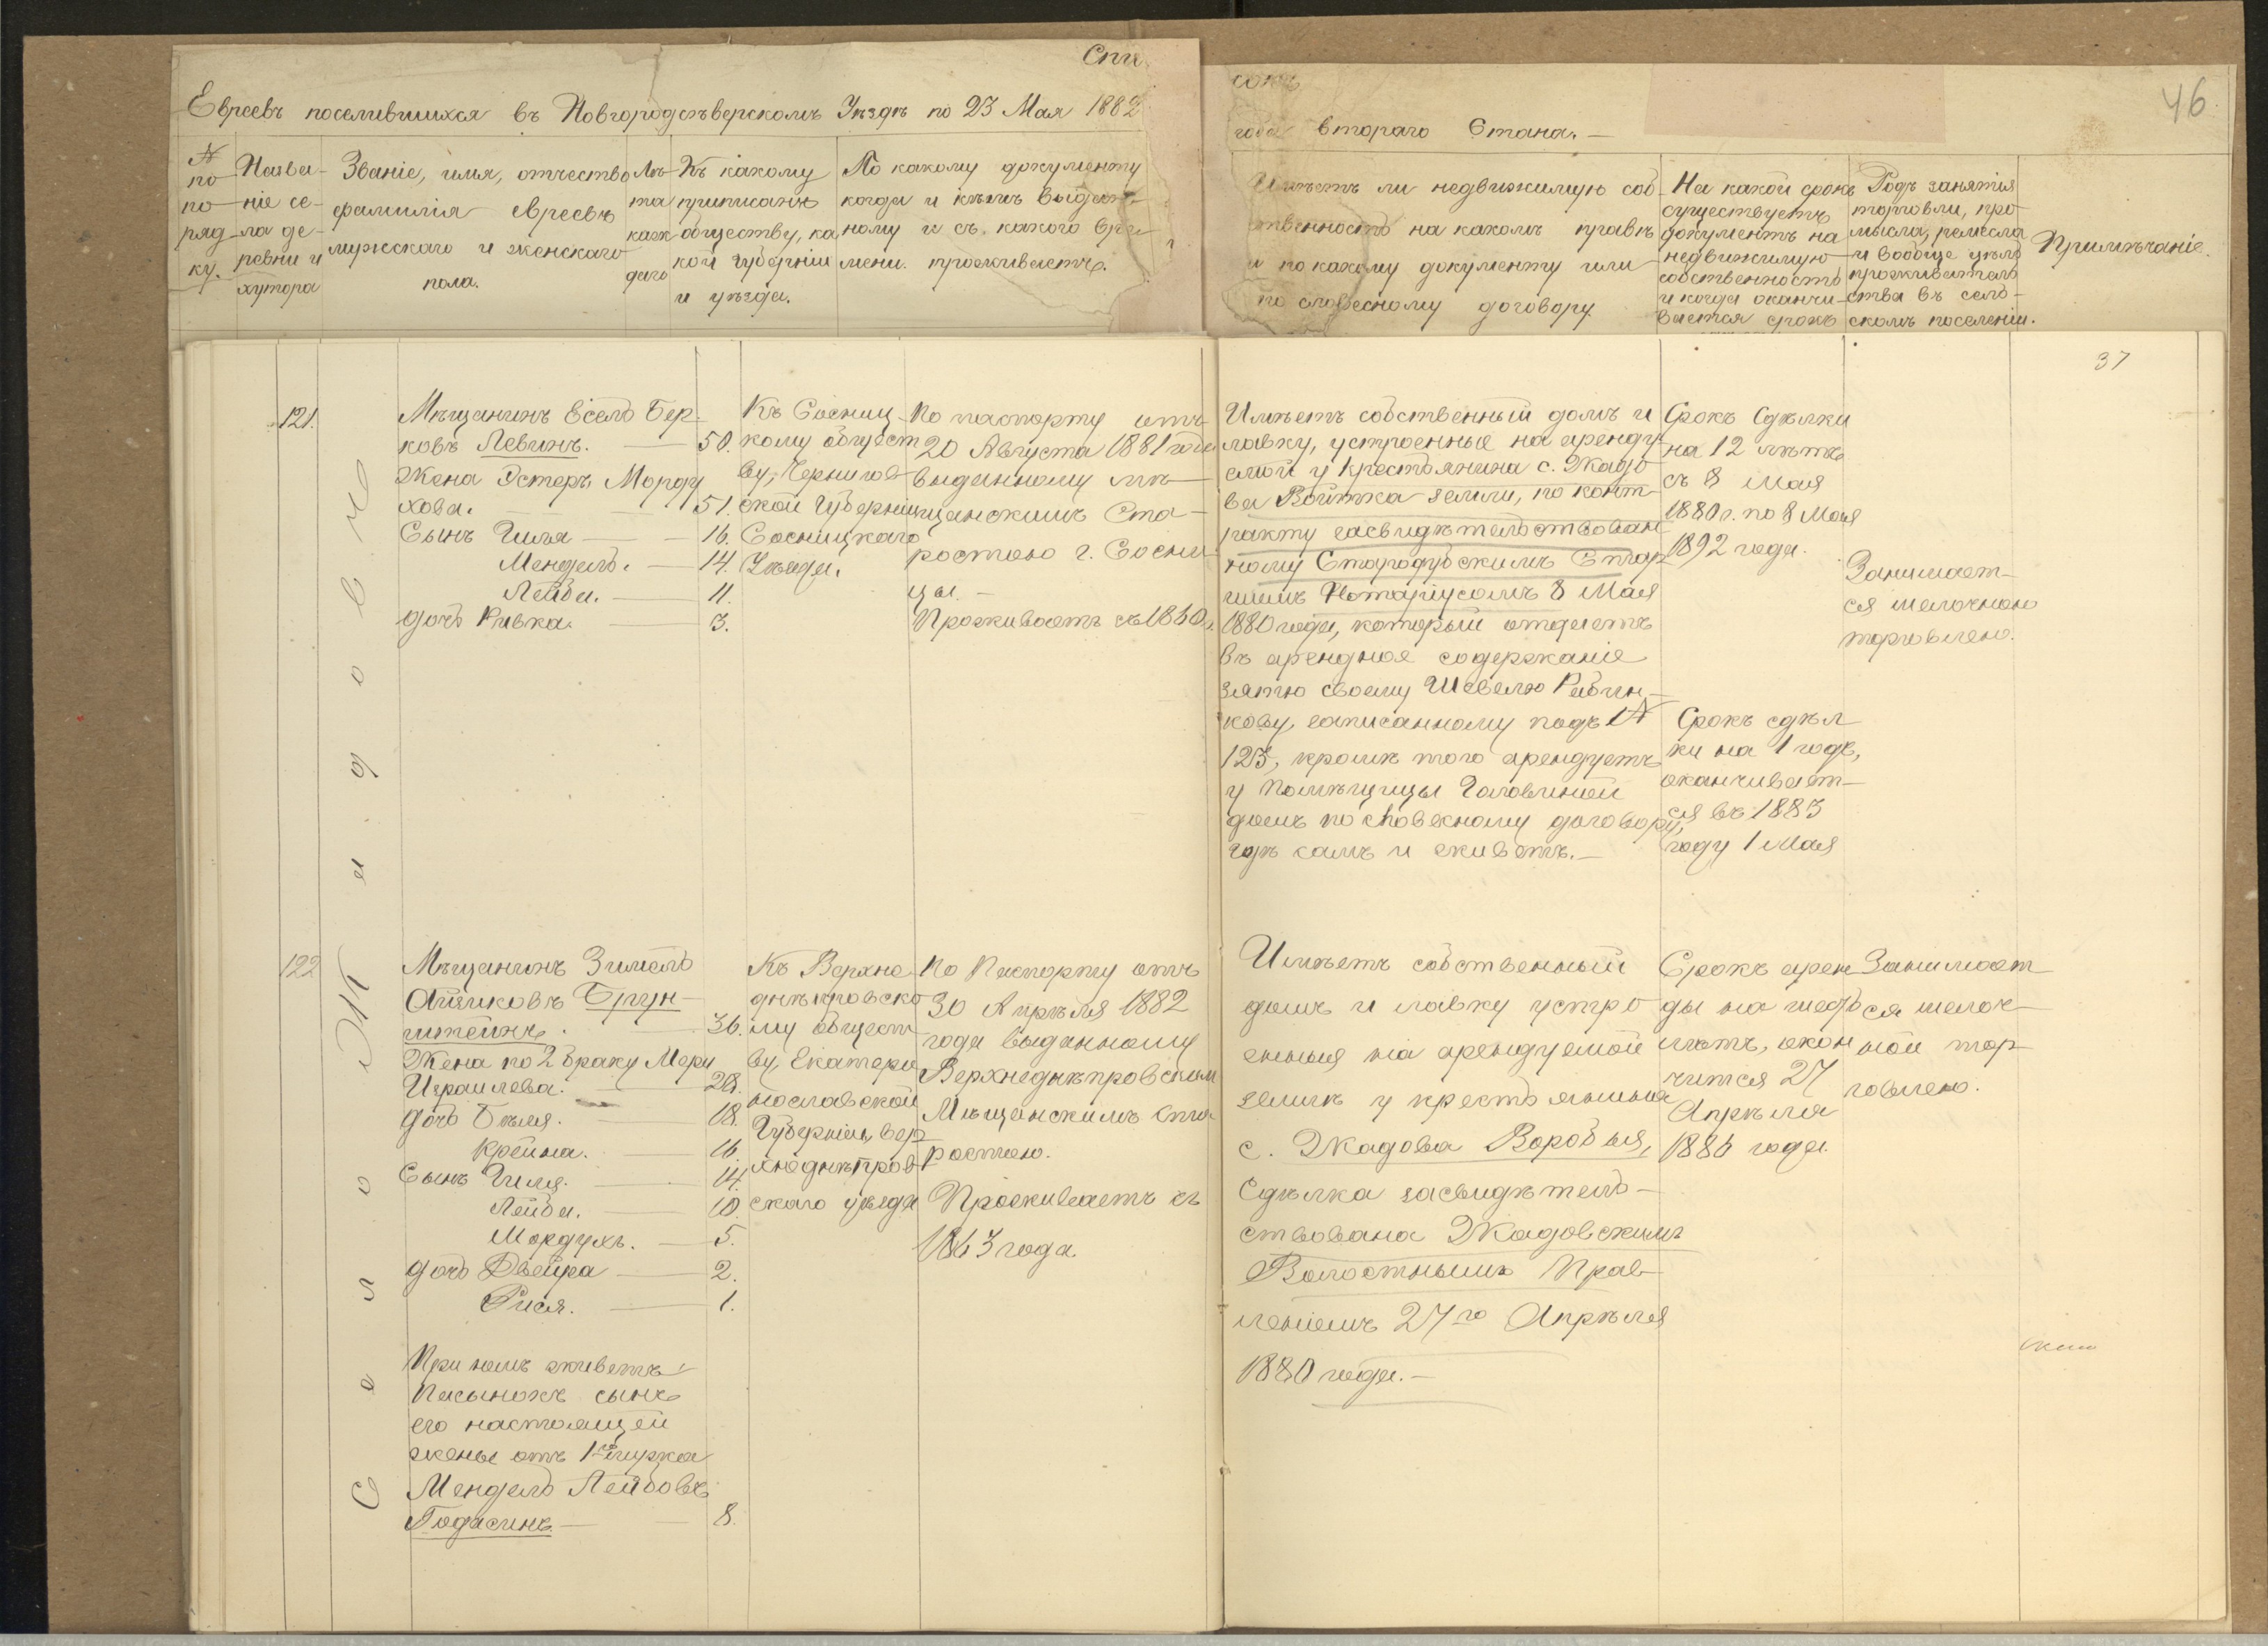 Спи
сокъ
46
Евреевъ поселившихся въ Новгородсѣверскомъ Уѣздѣ по 23 Мая 1882
года втораго Стана.
№
по
по
ряд
ку.
Назва-
ніе се-
ла де-
ревни и
хутора
Званіе, имя, отчество
фамилія евреевъ
мужскаго и женскаго
пола.
Лѣ-
та
каж
даго
Къ какому
приписанъ
обществу, ка
кой губерніи
и уѣзда.
По какому документу
когда и кѣмъ выдан-
ному и съ какого вре
мени проживаетъ.
Имѣетъ ли недвижимую соб-
ственность на какомъ правѣ
и по какому документу или
по словесному договору
На какой срокъ
существуетъ
документъ на
недвижимую
собственность
и когда оканчи-
вается срокъ
Родъ занятія
торговли, про
мысла, ремесла
и вообще цѣль
прожительс
ства въ сель-
скомъ поселеніи.
Примѣчаніе.
37
Село Жадово
121.
Мѣщанинъ Есель Бер-
ковъ Левинъ. 50.
Жена Эстеръ Морду
хова. 51.
Сынъ Гиля 16.
Мендель. 14.
Лейба. 11.
дочь Ривка. 3.
Къ Сосниц-
кому общест
ву, Чернигов-
ской Губерніи
Сосницкаго
Уѣзда.
По паспорту отъ
20 Августа 1881 года
выданному мѣ-
щанскимъ Ста-
ростою г. Сосни
цы.
Проживаетъ съ 1830 г.
Имѣетъ собственный домъ и
лавку, устроенные на аренду-
емой у крестьянина с. Жадо-
ва Войтка земли, по конт-
ракту засвидѣтельствован
ному Стародубскимъ Стар-
шимъ Нотаріусомъ 8 Мая
1880 года, который отдаетъ
въ арендное содержаніе
зятю своему Шевелю Рабин-
кову, записанному подъ №
123, кромѣ того арендуетъ
у помѣщицы Головиной
домъ по словесному договору,
гдѣ самъ и живетъ.
Срокъ Сдѣлки
на 12 лѣтъ
съ 8 Мая
1880 г. по 8 Мая
1892 года.
Срокъ сдѣл
ки на 1 годъ,
оканчивает-
ся въ 1883
году 1 Мая
Занимает-
ся мелочною
торговлею.
122
Мѣщанинъ Зимель
Айзиковъ Брун-
штейнъ. 36.
Жена по 2 браку Мера
Израилева. 28.
дочь Бейля. 18.
Крейна. 16.
Сынъ Гиля. 14.
Лейба. 10.
Мордухъ. 5.
дочь Двейра 2.
Рися. 1.
При немъ живетъ
Пасынокъ сынъ
его настоящей
жены отъ 1го мужа
Мендель Лейбовъ
Годасинъ 8.
Къ Верхне
днѣпровско
му общест
ву, Екатери
нославской
Губерніи, Вер
хнеднѣпров
скаго уѣзда
По Паспорту отъ
30 Апрѣля 1882
года выданному
Верхнеднѣпровским
Мѣщанскимъ Ста
ростою.
Проживаетъ съ
1863 года.
Имѣетъ собственный
домъ и лавку устро
енныя на арендуемой
землѣ у крестьянина
с. Жадова Воробья,
Сдѣлка засвидѣтель-
ствована Жадовскимъ
Волостнымъ Прав-
леніемъ 27го Апрѣля
1880 года.
Срокъ арен
ды на шесть
лѣтъ, окон
чится 27
Апрѣля
1886 года.
Занимает
ся мелоч-
ной тор
говлею.